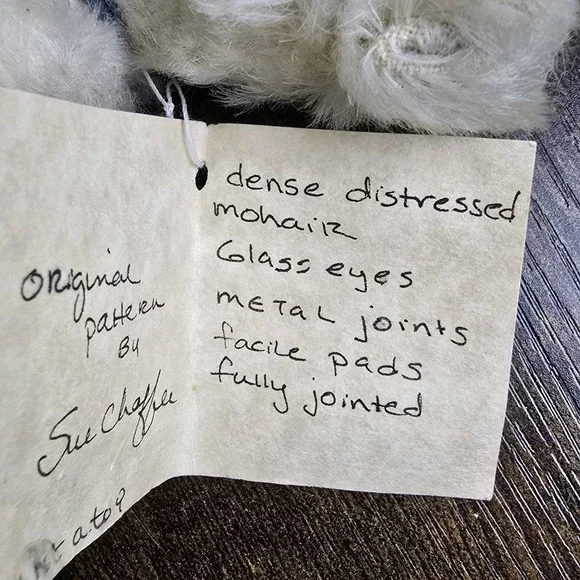 original
pattern
By
Sue Chaffee
dense distressed
mohair
Glass eyes
metal joints
facile pads
fully jointed